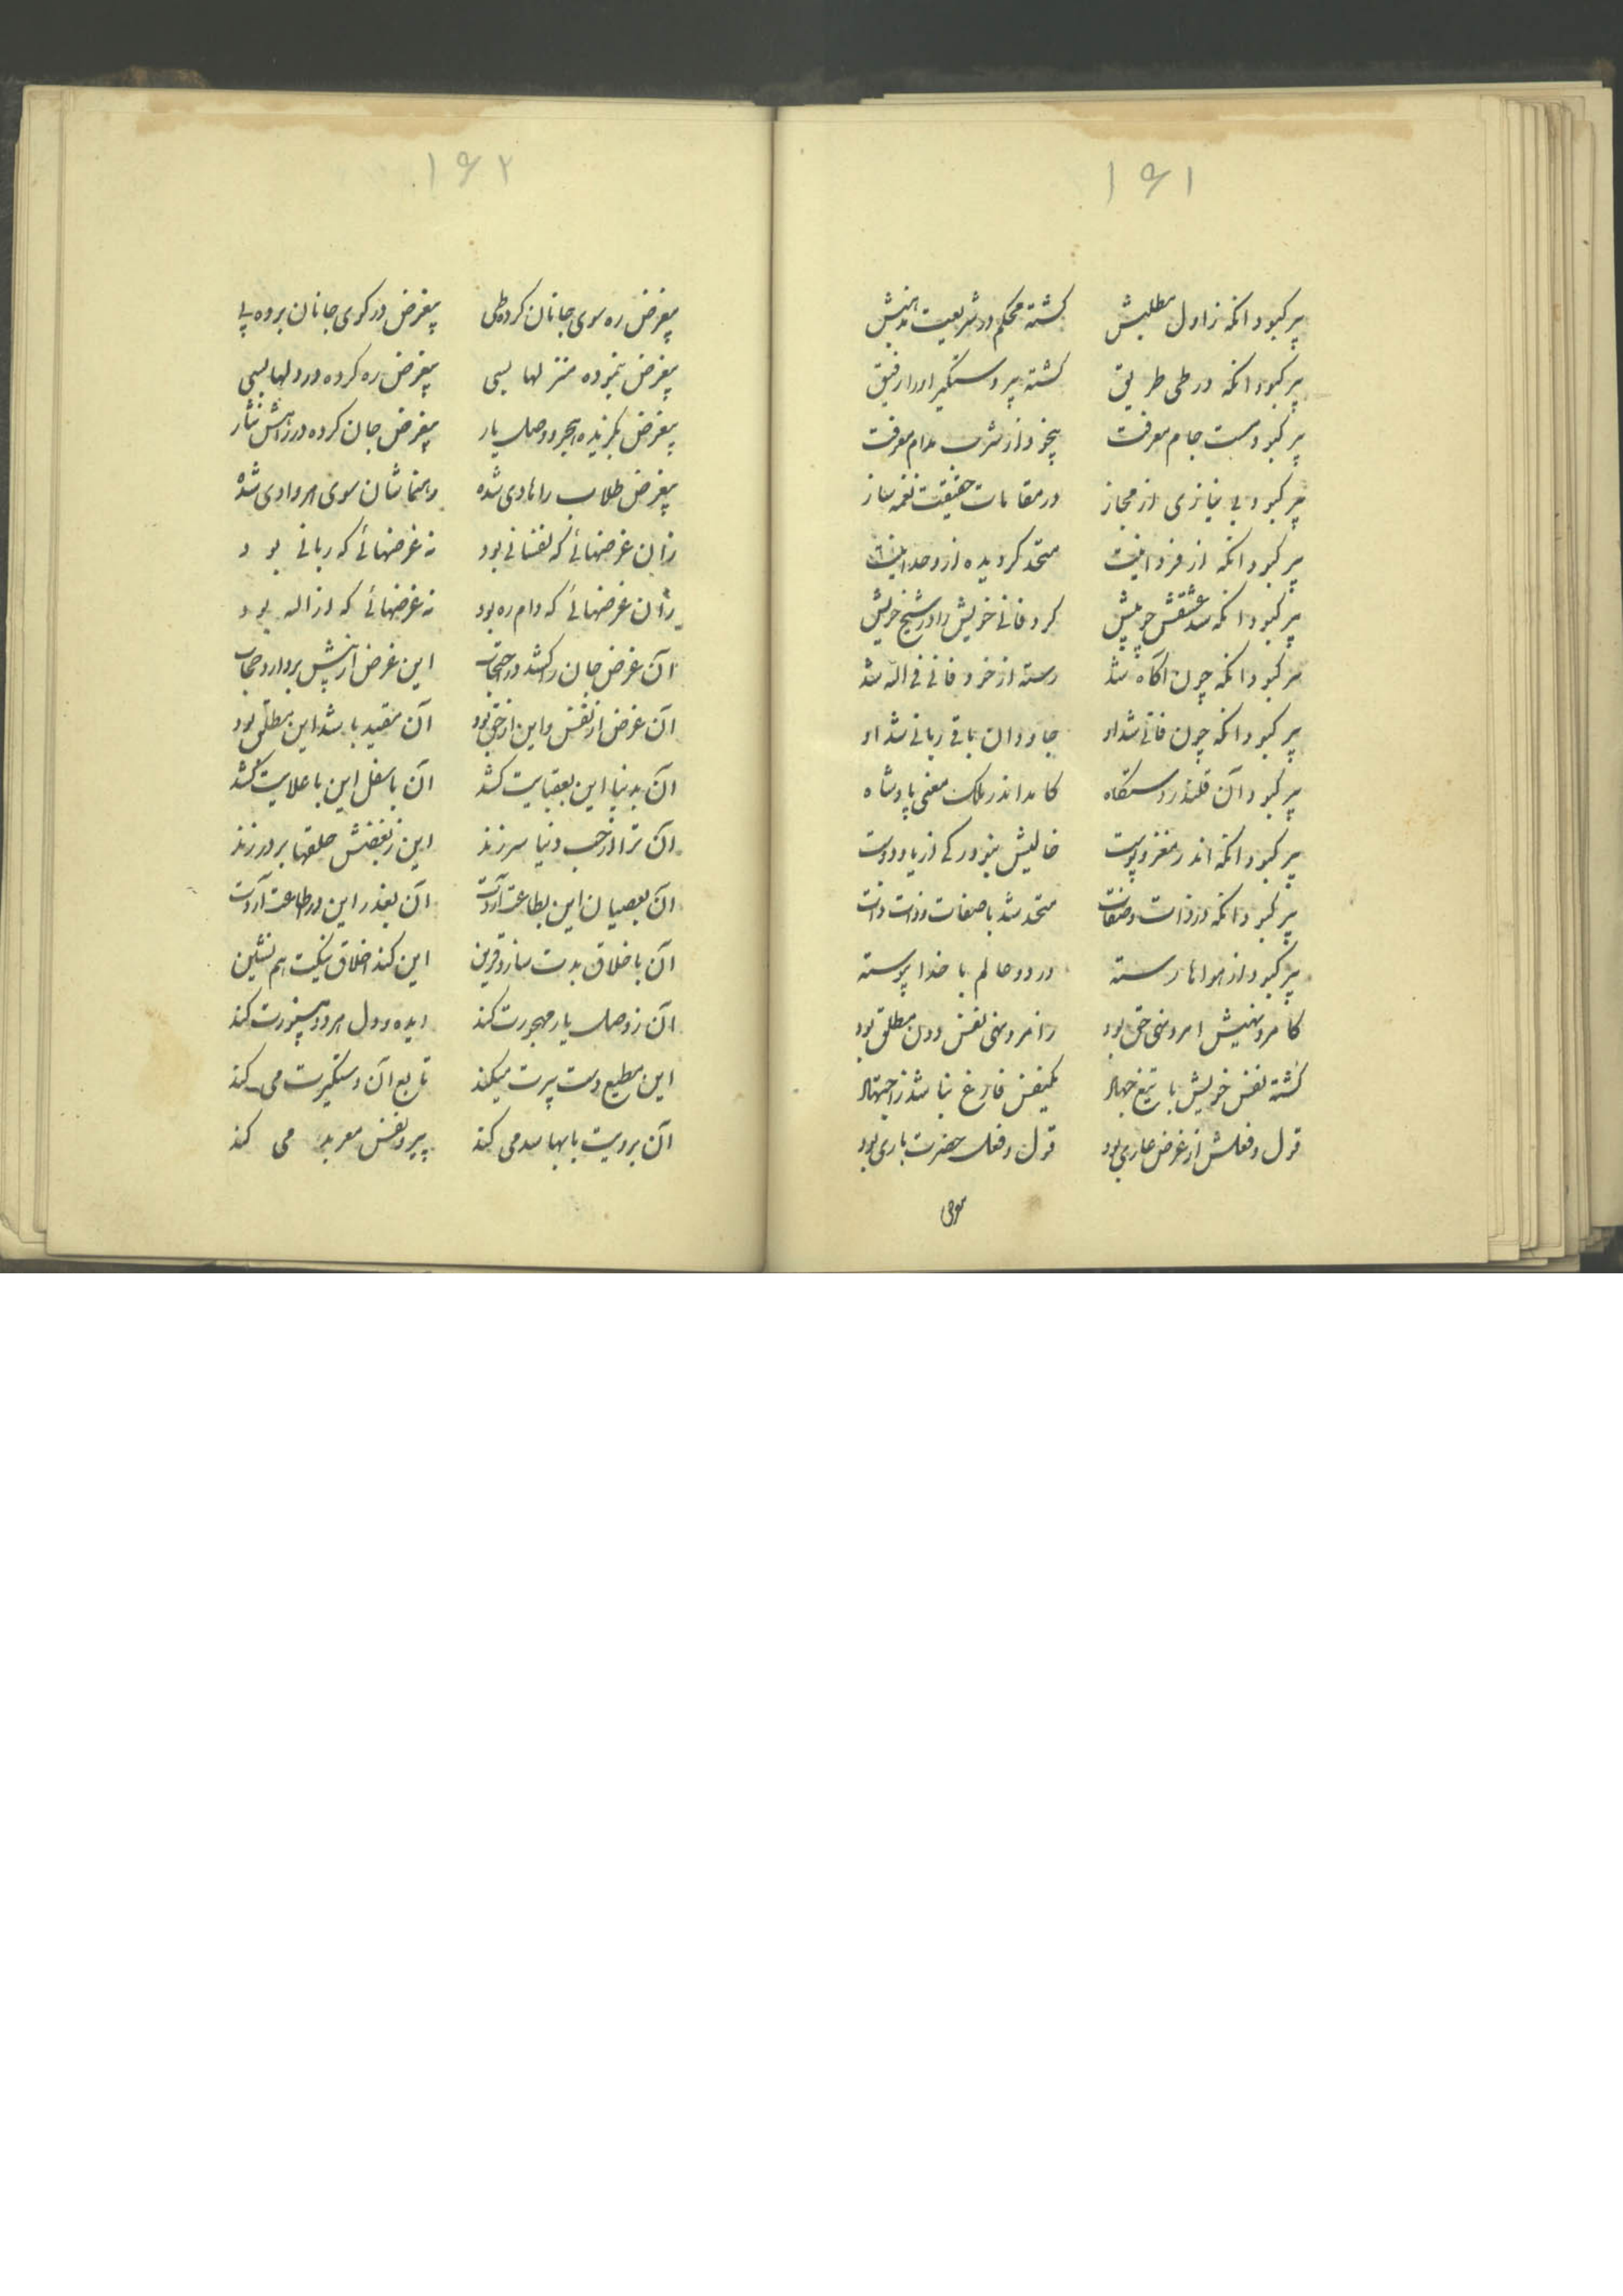 ۱۶۱
پیر کبود انکه ز اول مطلبش گشته محکم در شریعت مذهبش
پیر کبود انکه در طی طریق گشته پیر دستگیر او را رفیق
پیر کبود مست جام معرفت بیخود از شرب مدام معرفت
پیر کبود بی نیازی از مجاز در مقامات حقیقت نغمه ساز
پیر کبود انکه از فردانیت متحد گردیده از وحدانیت
پیر کبود انکه شد عشقش چو پیش کرد فانی خویش را در شیخ خویش
پیر کبود انکه چون اگاه شد رسته از خود فانی فی اله شد
پیر کبود انکه چون فانی شد او جاودان باقی ربانی شد او
پیر کبود آن قلندر دستگاه کامد اندر ملک معنی پادشاه
پیر کبود انکه اندر مغز و پوست خالیش نبود رکی از یاد دوست
پیر کبود انکه در ذات و صفات متحد شد با صفات و ذات ذات
پیر کبود از هواها رسته در دو عالم با خدا پیوسته
کامر و نهیش امر و نهی حق بود نز امر و نهی نفس دون مطلق بود
کشته نفس خویش با تیغ جهاد یکنفس فارغ نباشد ز اجتهاد
قول و فعلش از غرض عاری بود قول و فعل حضرت باری بود
۱۶۲
بیغرض ره سوی جانان کرده طی بیغرض در کوی جانان برده پی
بیغرض پیموده منزلها بسی بیغرض ره کرده در دلها بسی
بیغرض بگزیده هجر و وصل یار بیغرض جان کرده در راهش نثار
بیغرض طلاب را هادی شده رهنماشان سوی هر وادی شده
زان غرضهائی که نفسانی بود نه غرضهائی که ربانی بود
زان غرضهائی که دام ره بود نه غرضهائی که از اله بود
آن غرض جان را کشد در احتجاب این غرض از پیش بردارد حجاب
آن غرض از نفس و این از حق بود آن مقید باشد این مطلق بود
آن بدنیا این بعقبایت کشد آن باسفل این باعلایت کشد
آن ترا از حب دنیا سر زند این ز بغضش حلقها بر در زند
آن بعصیان این بطاعت آردت آن بعذر این در اطاعت آردت
آن باخلاق بدت سازد قرین این کند اخلاق نیکت هم نشین
آن ز وصل یار مهجورت کند دیده و دل هر دو بینورت کند
این مطیع دست پیرت میکند تابع آن دستگیرت می کند
آن برویت بابها سد می کند پیرو نفس معربد می کند